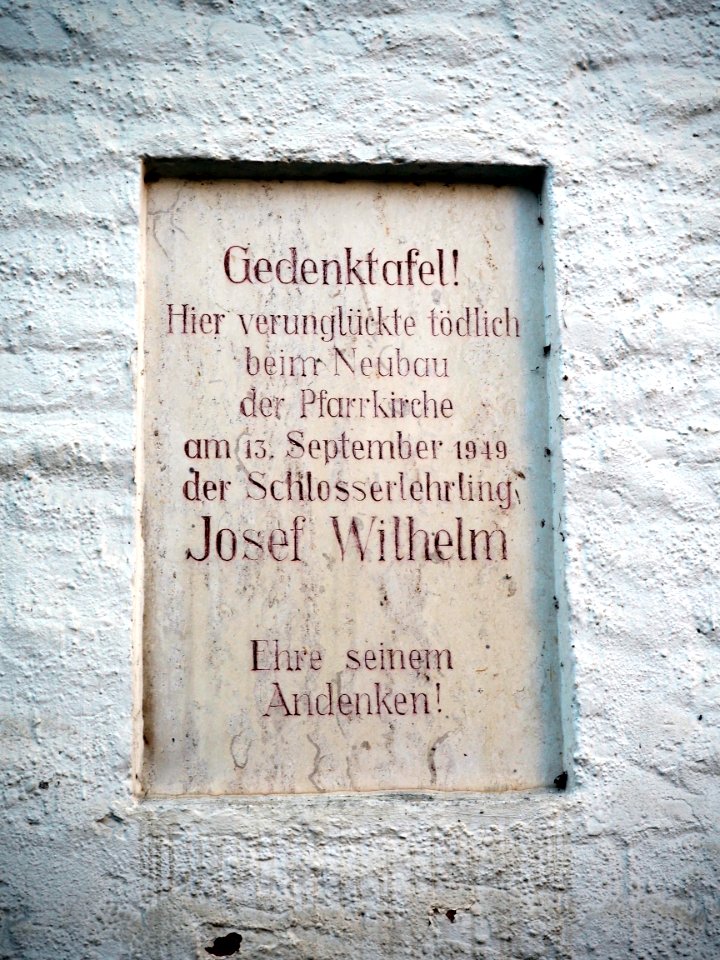 Gedenktafel!
Hier verunglückte tödlich
beim Neubau
der Pfarrkirche
am 13. September 1949
der Schlosserlehrling
Josef Wilhelm
Ehre seinem
Andenken!